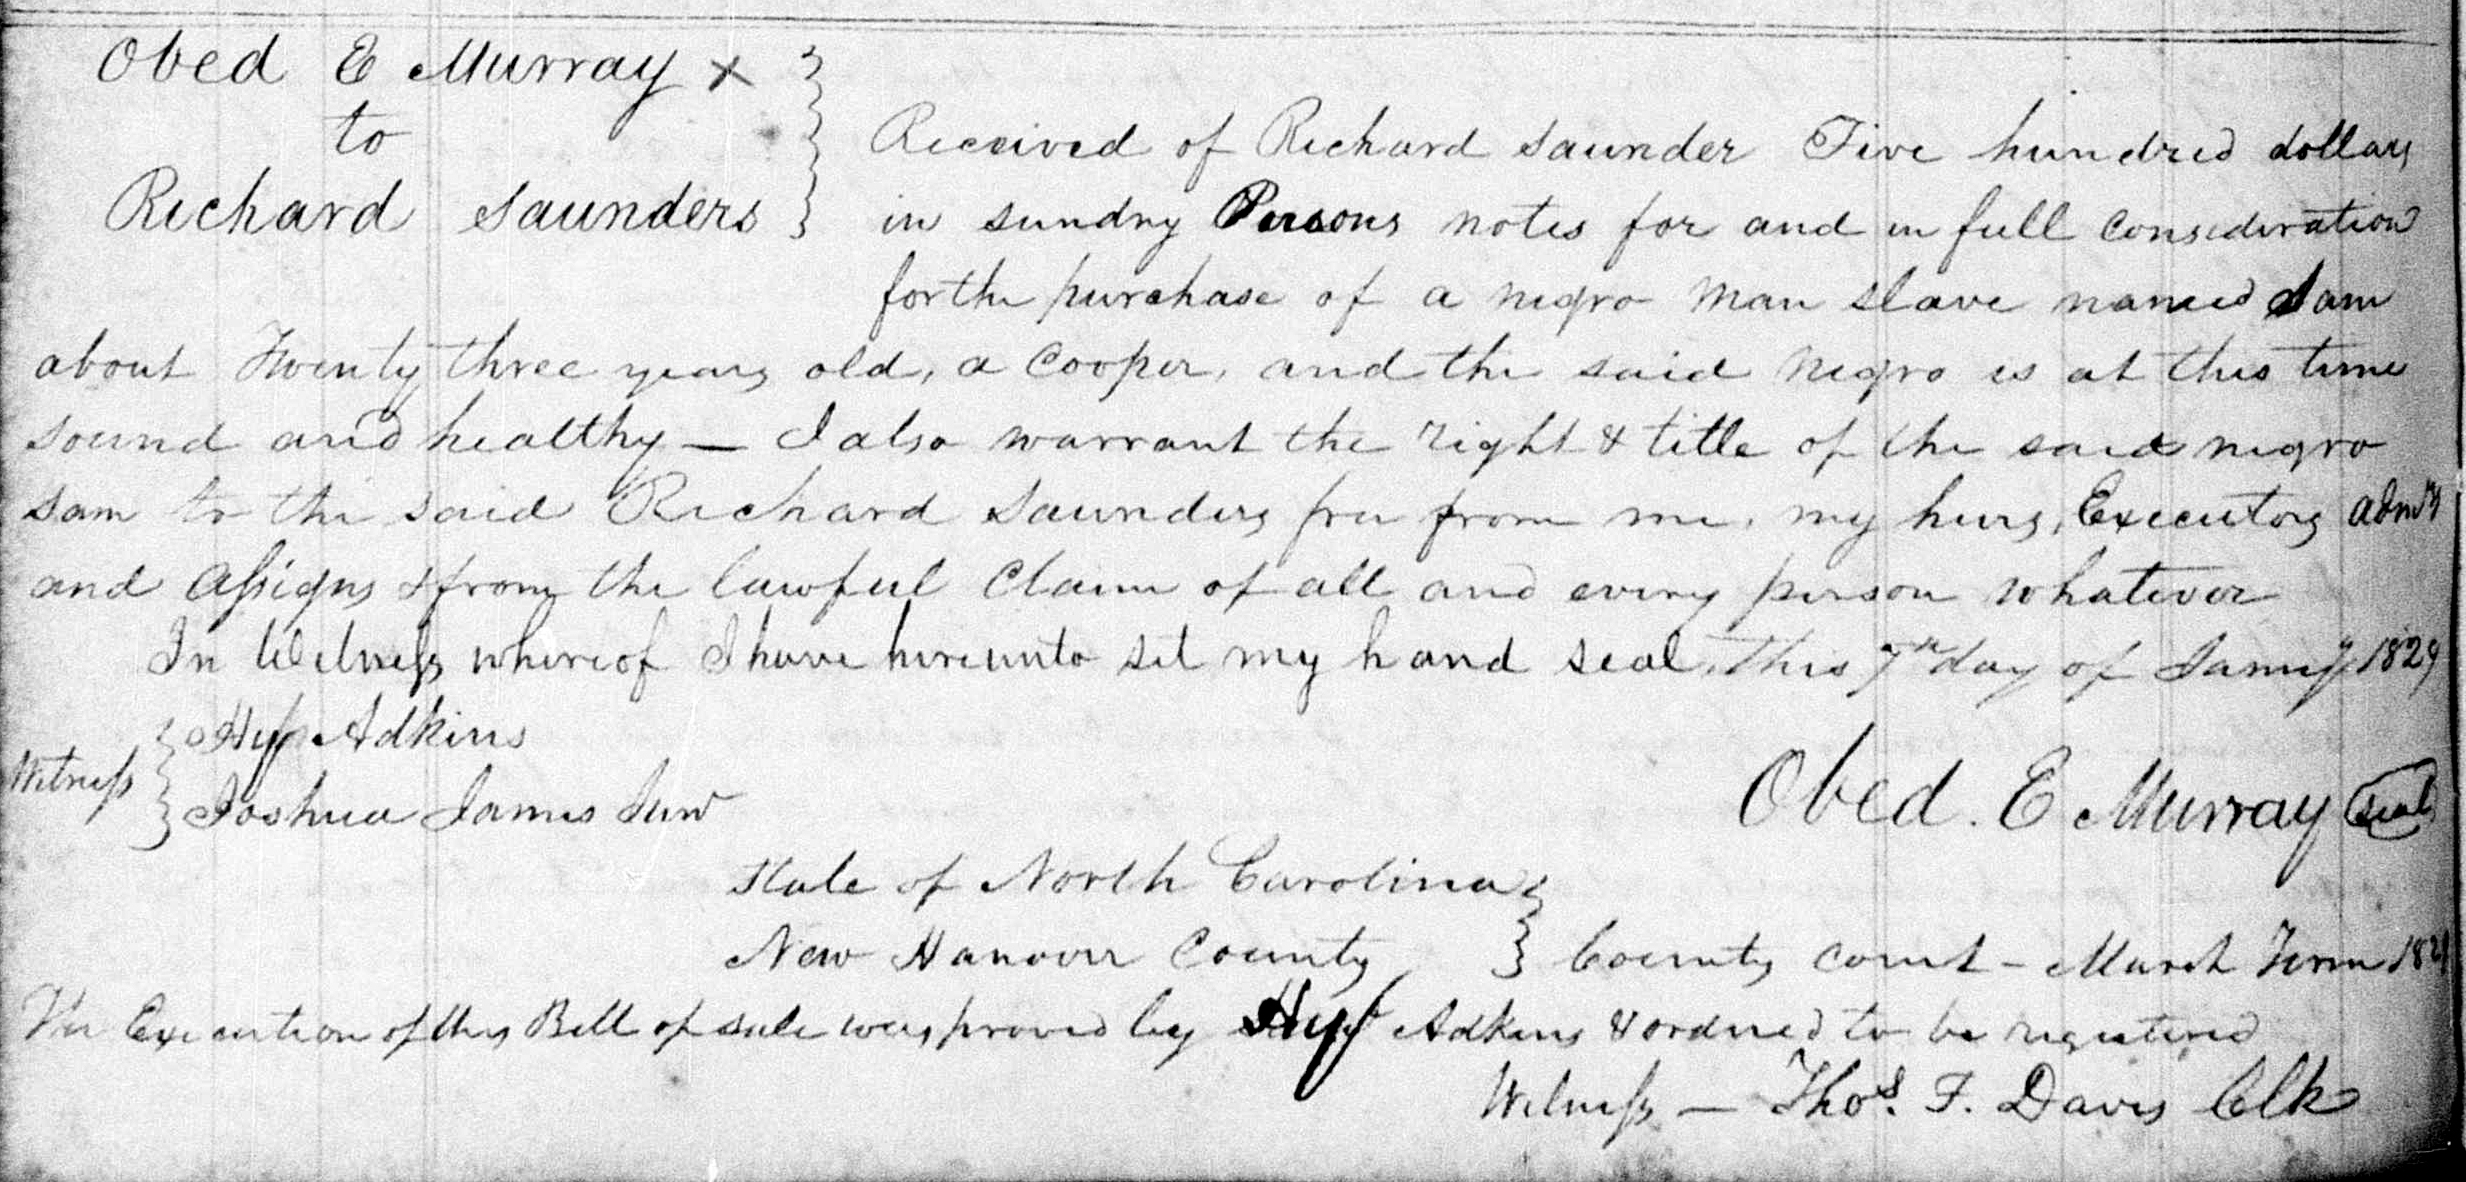 Obed E Murray x
to
Richard Saunders
Received of Richard Saunder Five hundred dollars
in sundry Persons notes for and in full consideration
for the purchase of a negro man slave named Sam
about Twenty three years old, a Cooper, and the said Negro is at this time
sound and healthy — I also warrant the right & title of the said negro
Sam to the said Richard Saunders free from me, my heirs, Executors adm.rs
and assigns & from the lawful Claim of all and every person whatever
In Witness whereof I have hereunto set my hand seal, this 7th day of Jany 1829
Witness Adkins
Joshua James Junr
Obed. E Murray seal
State of North Carolina
New Hanover County County court - March Term
The Execution of this Bill of sale was proved by Adkins & ordred to be registered
Witness — Thos. F. Davis Clk